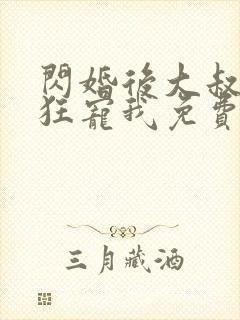 閃婚後大叔
狂寵我免費
三月藏酒